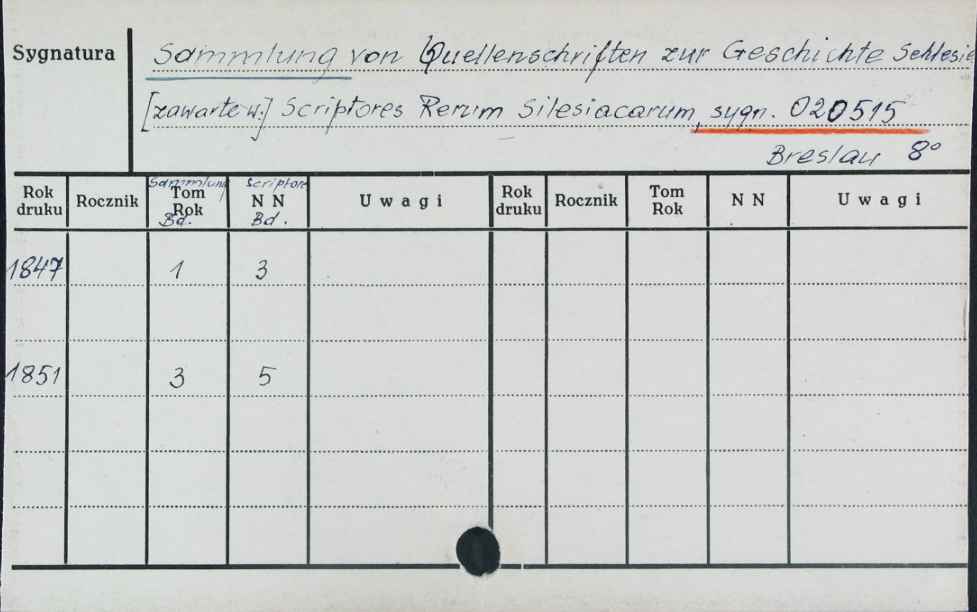 Sygnatura
Sammlung von Quellenschriften zur Geschichte Schlesie
[zawarte w:] Scriptores Rerum Silesiacarum, sygn. 020515
Breslau 8°
Rok druku Rocznik Sammlung Tom Rok Bd. Scriptore NN Bd. Uwagi Rok druku Rocznik Tom Rok NN Uwagi
1847 1 3
1851 3 5